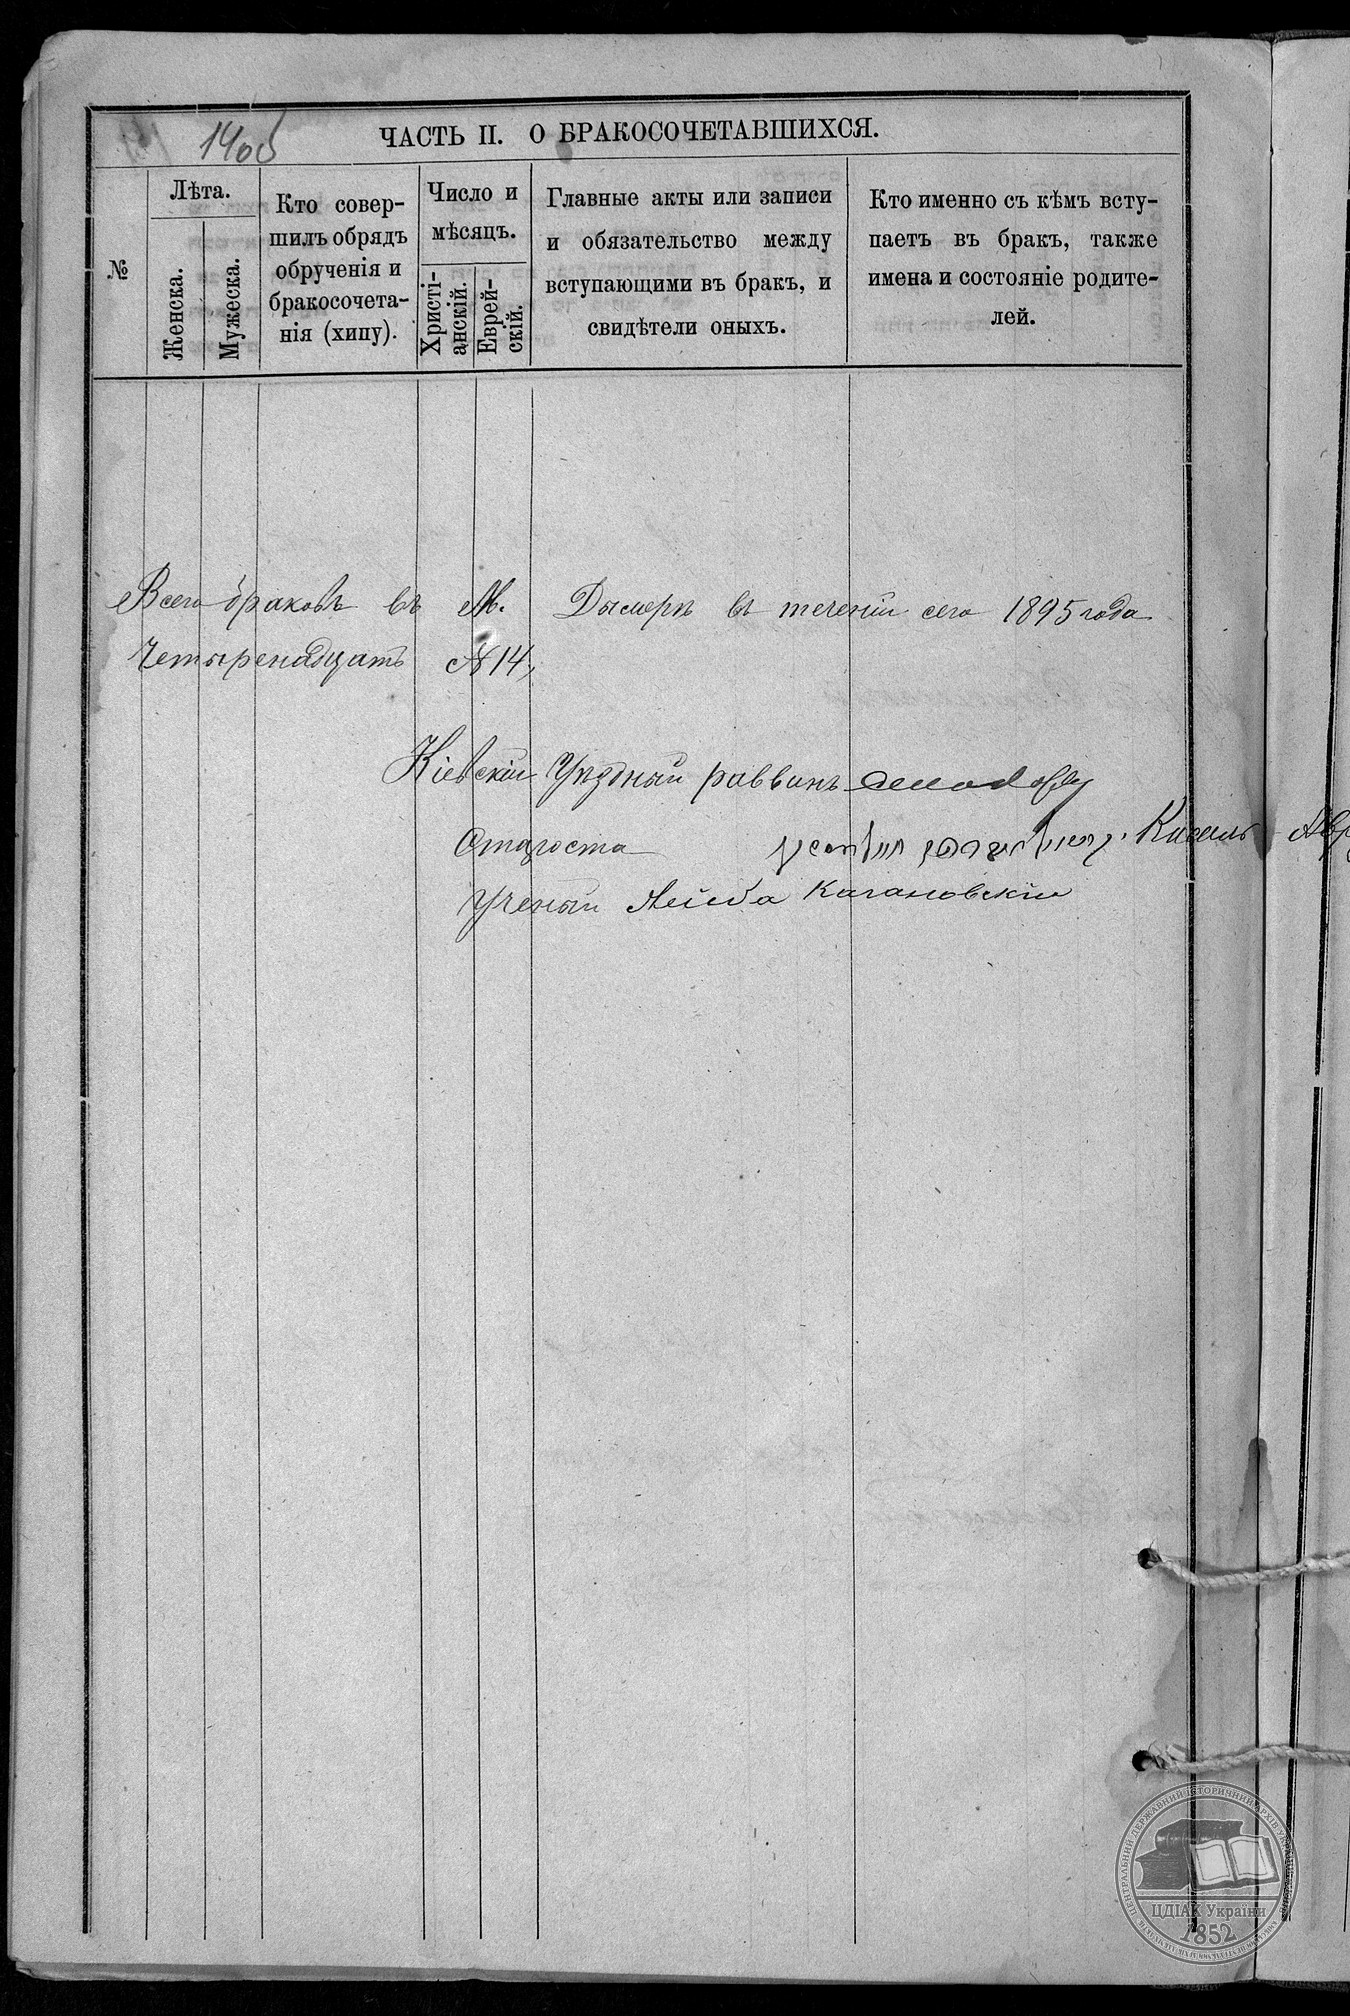 140об
ЧАСТЬ II. О БРАКОСОЧЕТАВШИХСЯ.
№
Лѣта.
Женска.
Мужеска.
Кто совер-
шилъ обрядъ
обрученія и
бракосочета-
нія (хипу).
Число и
мѣсяцъ.
Христі-
анскій.
Еврей-
скій.
Главные акты или записи
и обязательство между
вступающими въ бракъ, и
свидѣтели оныхъ.
Кто именно съ кѣмъ всту-
паетъ въ бракъ, также
имена и состояніе родите-
лей.
Всего браковъ въ М. Дымерѣ въ теченіи сего 1895 года
Четыренадцать №14,
Кіевскій Уѣздный раввинъ
Староста Кисель Авр
Ученый Лейба Кагановскій
ЦДІАК України
1852